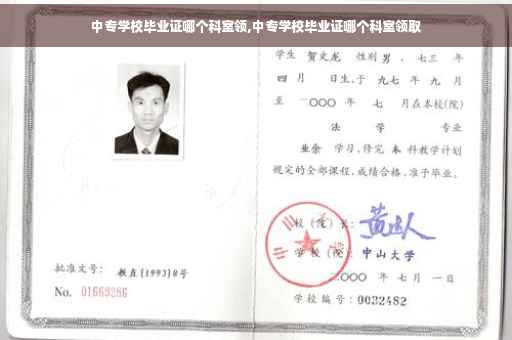 中专学校毕业证哪个科室领,中专学校毕业证哪个科室领取
学生 贺文龙 性别 男 、七三 年
四 月 日生,于 九七 年 九 月
至 二〇〇〇 年 七 月在本校(院)
法 学 专业
业余 学习,修完 本 科教学计划
规定的全部课程,成绩合格,准予毕业。
校(院)长:
学校(院): 中山大学
批准文号: 教直[1993]8号
二〇〇〇 年 七 月 一 日
No. 01669286
学校编号: 0032482